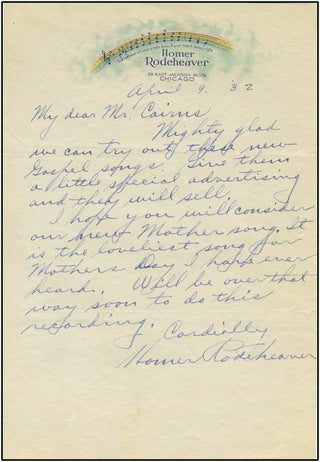 Homer
Rodeheaver
28 EAST JACKSON BLVD.
CHICAGO
April 9. '32
My dear Mr. Cairns
Mighty glad
we can try out these new
Gospel songs. Give them
a little special advertising
and they will sell.
I hope you will consider
our new Mother song. It
is the loveliest song for
Mothers Day I have ever
heard. Will be over that
way soon to do this
recording.
Cordially
Homer Rodeheaver